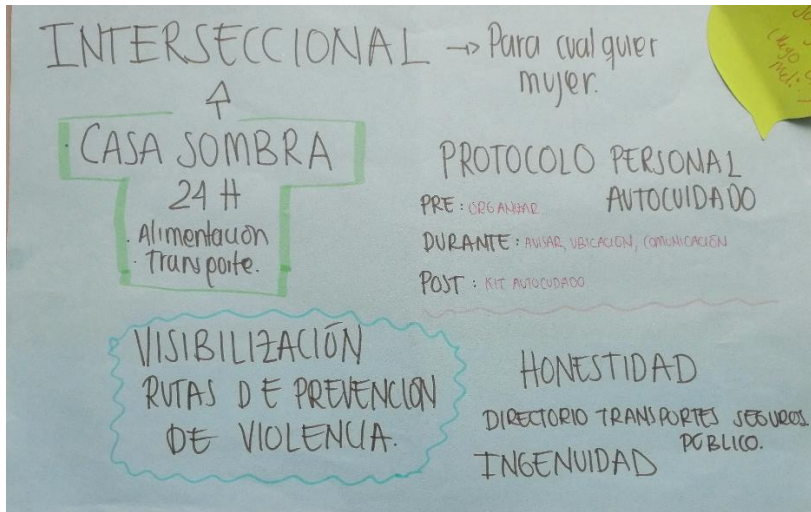 INTERSECCIONAL → Para cualquier
mujer.
· CASA SOMBRA
24 H
· Alimentación
· Transporte.
PROTOCOLO PERSONAL
AUTOCUIDADO
PRE : ORGANIZAR.
DURANTE : AVISAR, UBICACIÓN, COMUNICACIÓN
POST : KIT AUTOCUIDADO
VISIBILIZACIÓN
RUTAS DE PREVENCIÓN
DE VIOLENCIA.
HONESTIDAD
DIRECTORIO TRANSPORTES SEGUROS
PÚBLICO.
INGENUIDAD